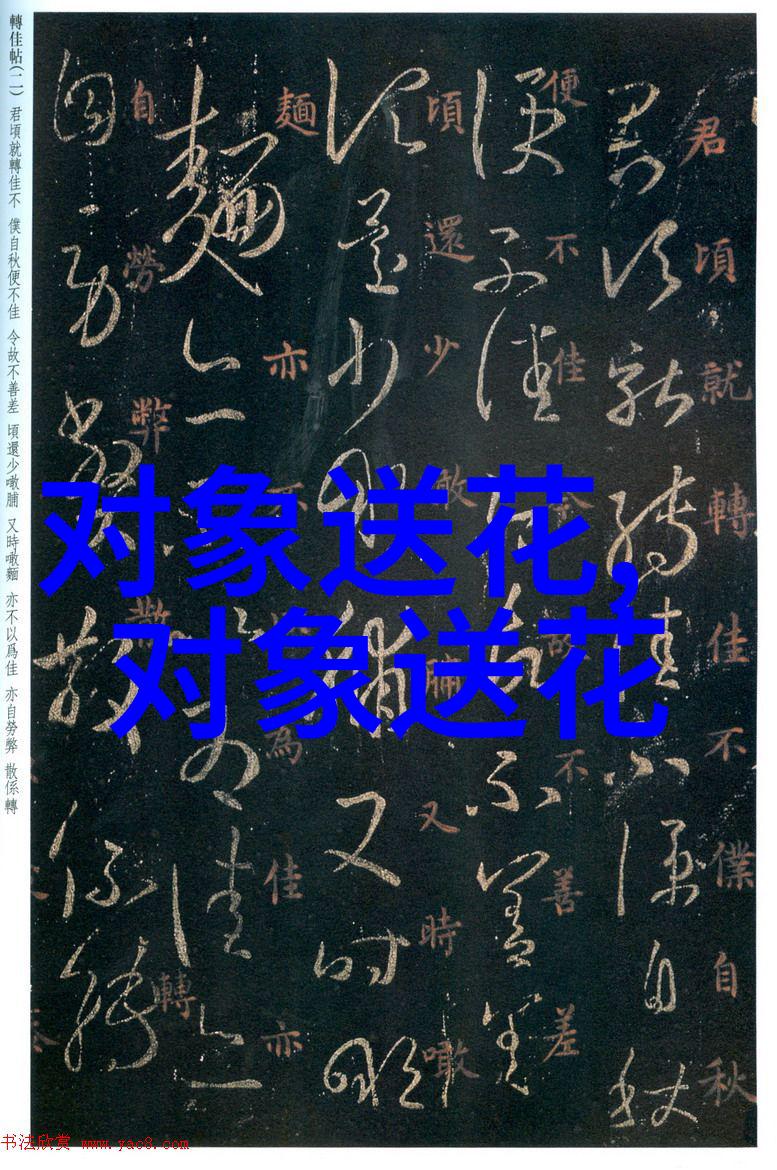 轉佳帖(二) 君頃就轉佳不 僕自秋便不佳 令故不善差 頃還少噉脯 又時噉麵 亦不以爲佳 亦自勞弊 散係轉
君頃就轉佳不僕自秋
便不佳令故不善差
頃還少噉脯又時噉
麵亦不以為佳亦
自勞弊散係轉
对象送花,
对象送花
书法欣赏 www.yac8.com